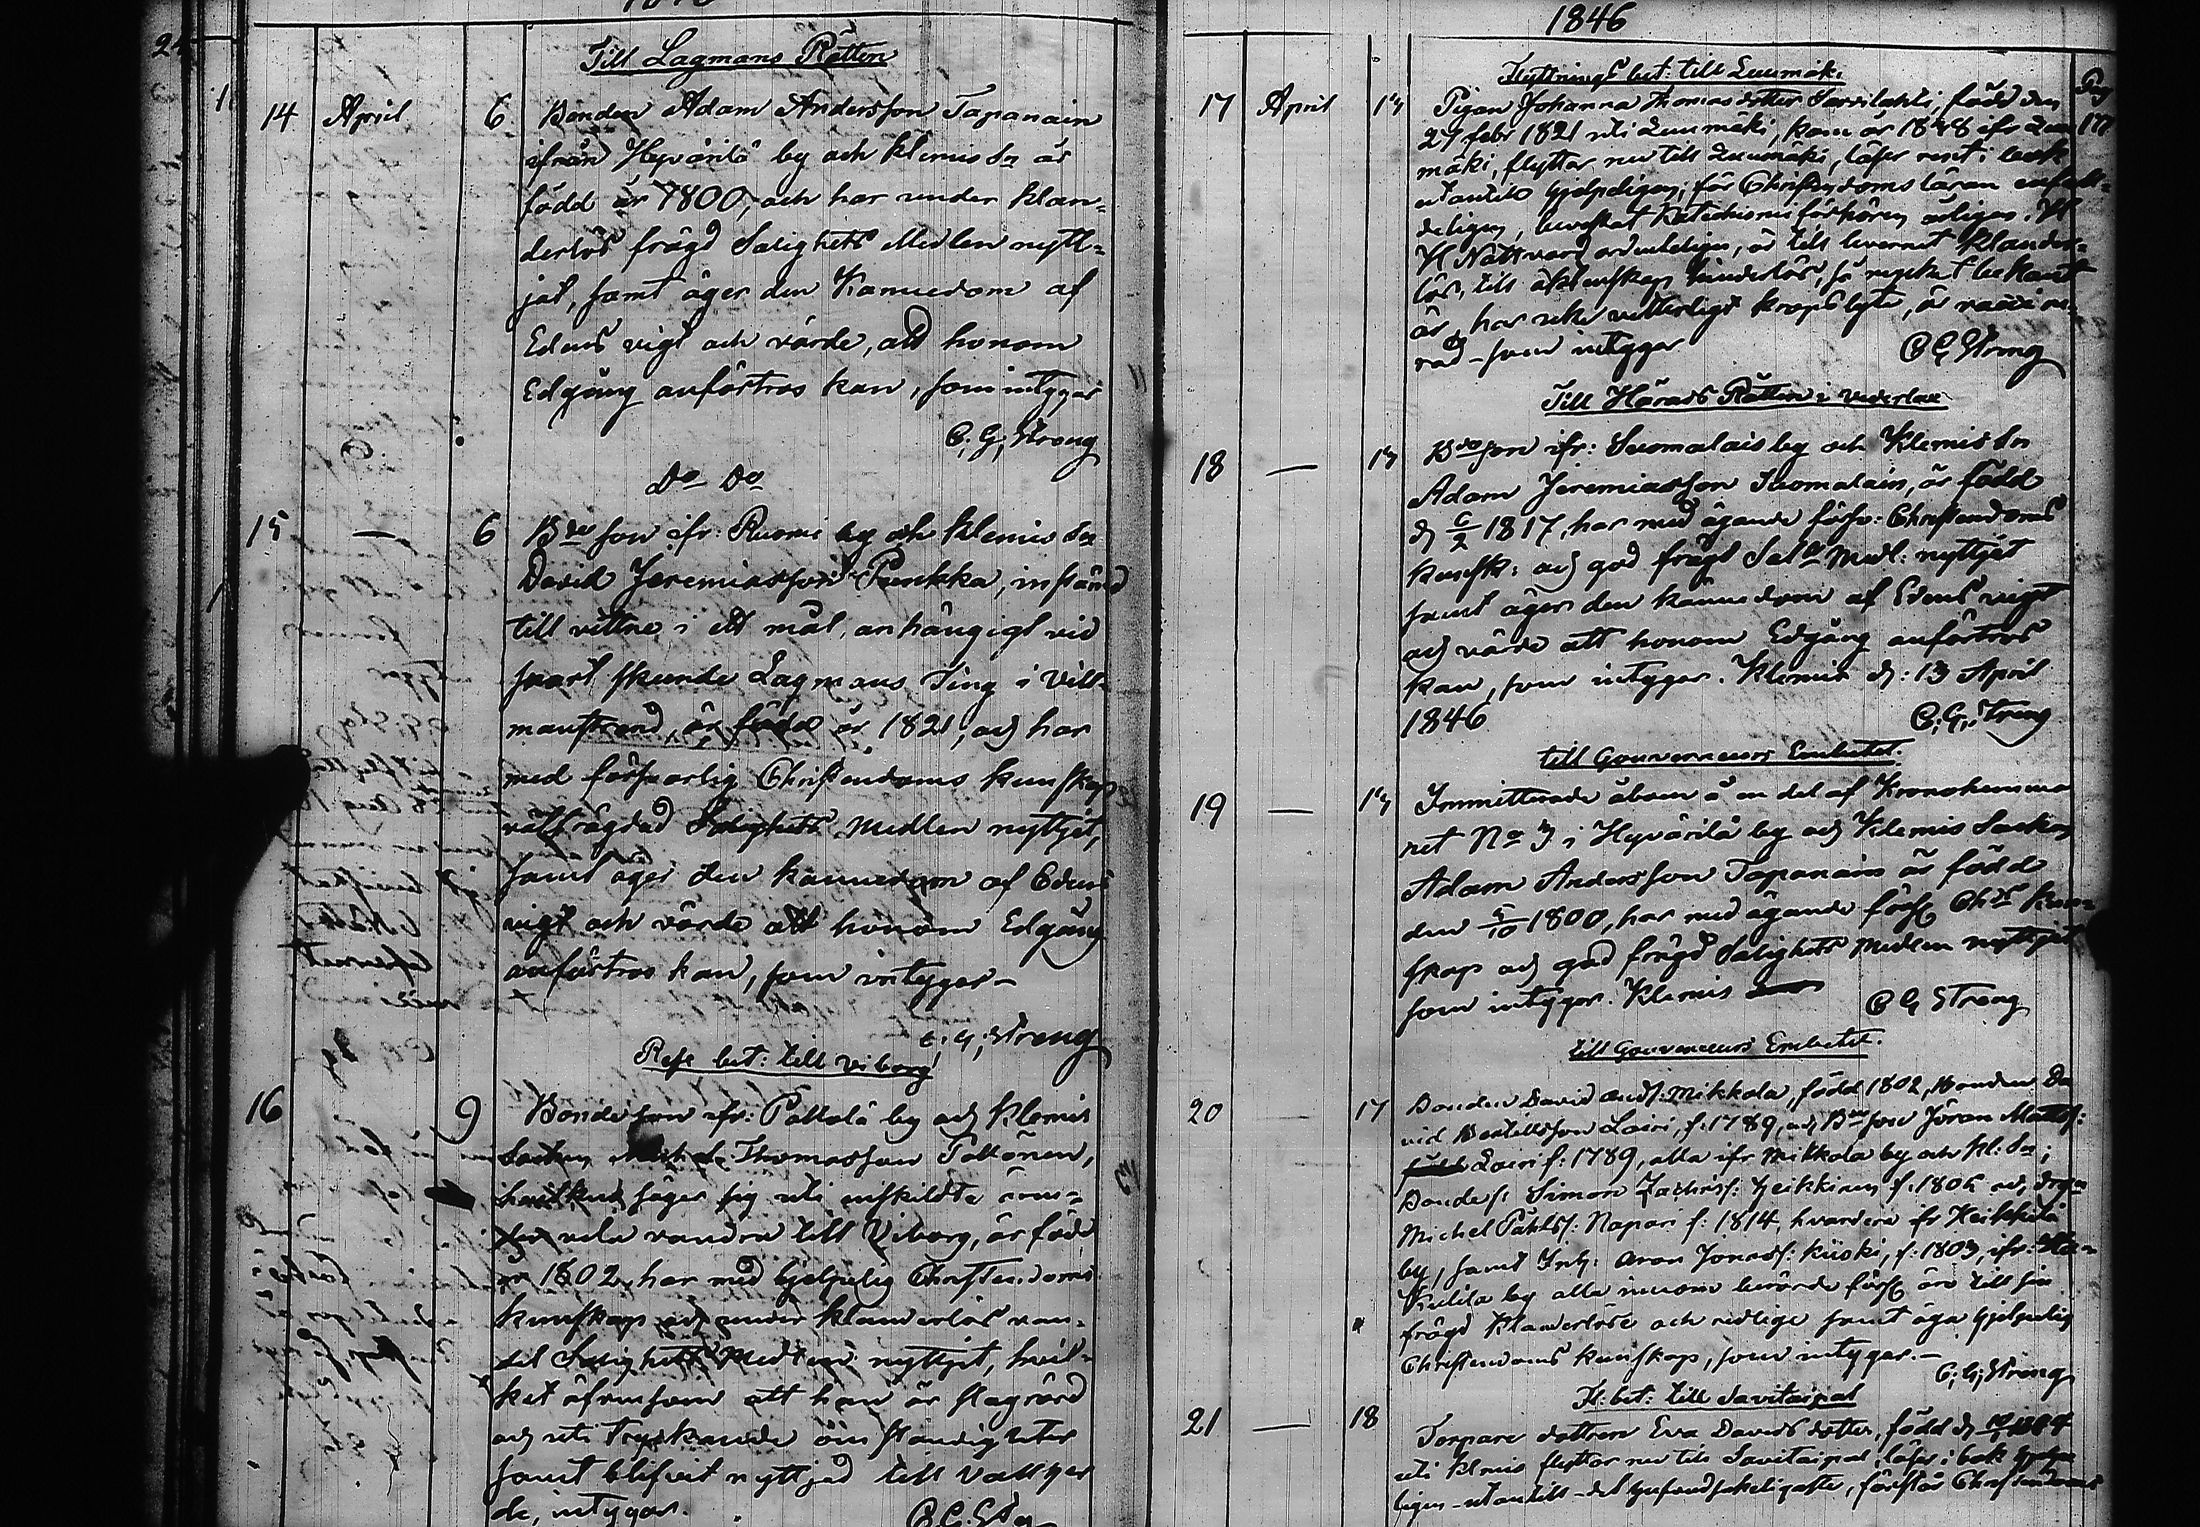 Till Lagmans Rätten
14 April 6 Bonden Adam Andersson Tapanain
ifrån Hyvärilä by och Klemis Sn är
född år 1800, och har under klan-
derlös frägd Salighets Medlen nytt-
jat, samt äger den Kännedom af
Edens vigt och värde, att honom
Edgång anförtros kan, som intygar
C. G. Streng
Do Do
15 — 6 Bdeson ifr: Ruomi by och Klemis Sn
David Jeremiasson Punkka, instämd
till vittne i ett mål, anhängigt vid
snart skeende Lagmans Ting i Vill-
manstrand, är född år 1821, och har
med försvarlig Christendoms kunskap
välfrägdad Salighets medlen nyttjat,
samt äger den kännedom af Edens
vigt och värde att honom Edgång
anförtros kan, som intygar —
C. G. Streng
Rese bet: till Viborg
16 9 Bondeson ifr: Pättälä by och Klemis
Socken Michel Thomasson Pollönen,
hvilken säger sig uti enskildta ären-
der vela vandra till Viborg, är född
år 1802, har med hjelpelig Christendoms
kunskap och under klanderlös van-
del Salighets Medlen nyttjat, hvil-
ket äfvensom att han är
och uti tryckande omständigheter
samt blifvit nyttjad till
de, intygar.
1846
Flyttnings bet: till Luumäki
17 April 13 Pigan Johanna Thomasdotter Sarvilahti, född den Pag
27 febr 1821 uti Luumäki, kom år 18 8 ifr Luu- 177
mäki, flyttar nu till Luumäki, läser rent i bok
utantill hjelpeligen, för Christendoms läran enfal-
deligen, bevistat Katechismi förhören årligen.
H Nattvard ordentligen, är till lefvernet klander-
lös, till äktenskap hinderlös, så mycket bekant
är, har icke vitterligt kropslyte, är vaccine-
rad — som intygar
C G Streng
Till Härads Rätten i Vederlax
18 — 13 Bdeson ifr: Suomalais by och Klemis Sn
Adam Jeremiasson Suomalain, är född
d 6/2 1817, har med ägande försv: Christendoms
kunsk: och god frägd Sal:s Medl: nyttjat
samt äger den kännedom af Edens vigt
och värde att honom Edgång anförtros
kan, som intygar. Klemis d: 13 April
1846 C. G. Streng
till Gouverneurs Embetet.
19 — 13 Immitterade åboen å en del af Kronohemma-
net No 3 i Hyvärilä by och Klemis Socken
Adam Andersson Tapanain är född
den 5/10 1800, har med ägande förs: Chrs kun-
skap och god frägd Salighets medlen nyttjat
som intygar. Klemis C G Streng
till Gouverneurs Embetet.
20 17 Bonden David Ands: Mikkola, född 1802, Bonden Da
vid Bertillsson Lairi, f. 1789, och Bdeson Jöran Matts:
Lairi f: 1789, alla ifr Mikkola by och Kl: Sn,
Bondes: Simon Zachris: Heikkinen f. 1806 och
Michel Påhls: Napari f: 1814, hvardera ifr Heikkilä
by, samt Inh: Aron Jonas: Kiiski, f: 1803, ifr:
by alla inuom berörde förs: äro till sin
frägd klanderlöse och redlige samt äga hjelpelig
Christendoms kunskap, som intygar. —
C. G. Streng
Fl: bet: till Savitaipal
21 — 18 Torpare dottren Eva Davids dotter, född d
uti Klemis flyttar nu till Savitaipal, läser i bok hjelpe
ligen — utantill — det hufvudsakeligaste, förstår Christendoms